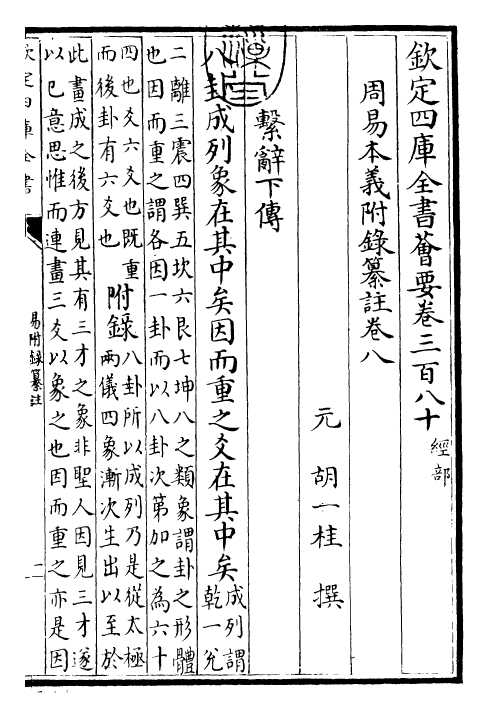 欽定四庫全書薈要卷三百八十
經部
周易本義附錄纂註卷八
元 胡一桂 撰
繫辭下傳
八卦成列象在其中矣因而重之爻在其中矣
成列謂
乾一兊
二離三震四巽五坎六艮七坤八之類象謂卦之形體
也因而重之謂各因一卦而以八卦次第加之為六十
四也爻六爻也既重
而後卦有六爻也
附錄
八卦所以成列乃是從太極
兩儀四象漸次生出以至於
此畫成之後方見其有三才之象非聖人因見三才遂
以己意思惟而連畫三爻以象之也因而重之亦是因
欽定四庫全書
易附錄纂註